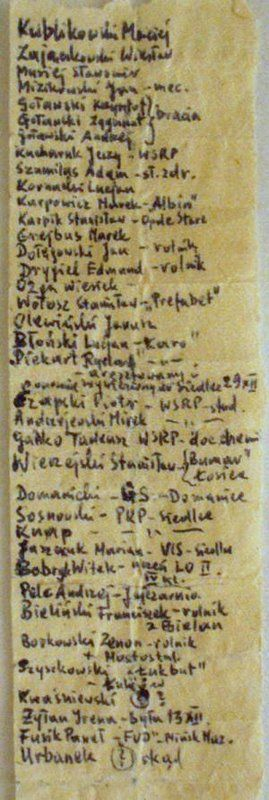 Kublikowski Maciej
Zajączkowski Wiesław
Musiej Sławomir
Mizikowski Jan - mec.
Goławski Krzysztof
Goławski Zygmunt } bracia
Goławski Andrzej
Kucharuk Jerzy - WSRP
Szumiłas Adam - sł. zdr.
Kornacki Lucjan
Karpowicz Marek - "Albin"
Karpik Stanisław - Opole Stare
Grejbus Marek
Dołęgowski Jan - rolnik
Drygiel Edmund - rolnik
Wiesiek -
Wołosz Stanisław - "Prefabet"
Olewiński Janusz
Błoński Lucjan - "Karo"
Piekart Ryszard - " -
aresztowany
ponownie Siedlce 29 XII
Czapski Piotr - WSRP - stud.
Andrzejewski Mirek - " -
Gałko Tadeusz WSRP - doc chemii
Wierzejski Stanisław { "Bumar" Łosice
Domanicki - GS - Domanice
Sosnowski - PKP - Siedlce
Knap - " -
Marian - VIS - Siedlce
Bobryk Witek - uczeń LO II
IV kl.
Pelc Andrzej - Jajczarnia
Bieliński Franciszek - rolnik
z Bielan
Borkowski Zenon - rolnik
+ Mostostal
Szyszkowski - "Łukbut"
- Łuków
Kwaśniewski ?
Żyłan Irena - była 13 XII.
Fusik Paweł - "FUD" - Mińsk Maz.
Urbanek (?) skąd